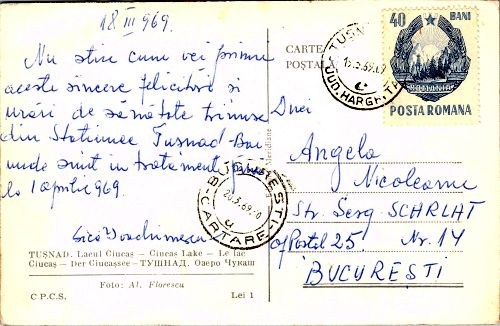 18 III 969.
Nu știu cum vei primi
aceste sincere felicitări și
urări de sănătate trimise
din Stațiunea Tușnad-Băi
unde sînt în tratament până
la 1 aprilie 969.
TUȘNAD. Lacul Ciucaș — Ciucas Lake — Le lac
Ciucaș — Der Ciucassee — ТУШНАД. Озеро Чукаш
Foto: Al. Florescu
C.P.C.S. Lei 1
Meridiane
CARTE
POȘTALĂ
40 BANI
POSTA ROMANA
TUȘNAD
19.3.69
JUD. HARGHITA
BUCUREȘTI
20.3.69
CARTARE
Dnei
Angela
Nicoleanu
Str. Serg SCHRLAT
of Postal 25. Nr. 14
BUCUREȘTI